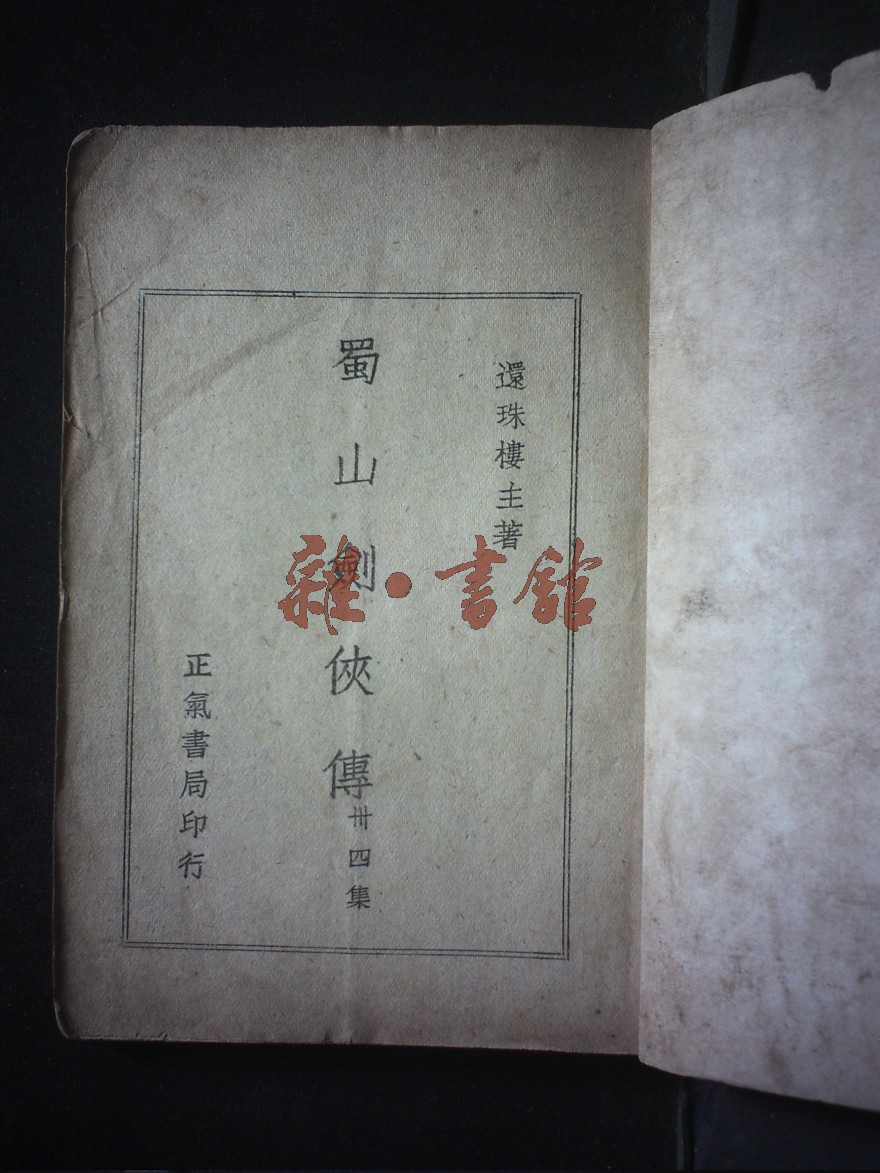 還珠樓主著
蜀山劍俠傳
卅四集
正氣書局印行
雜·書館